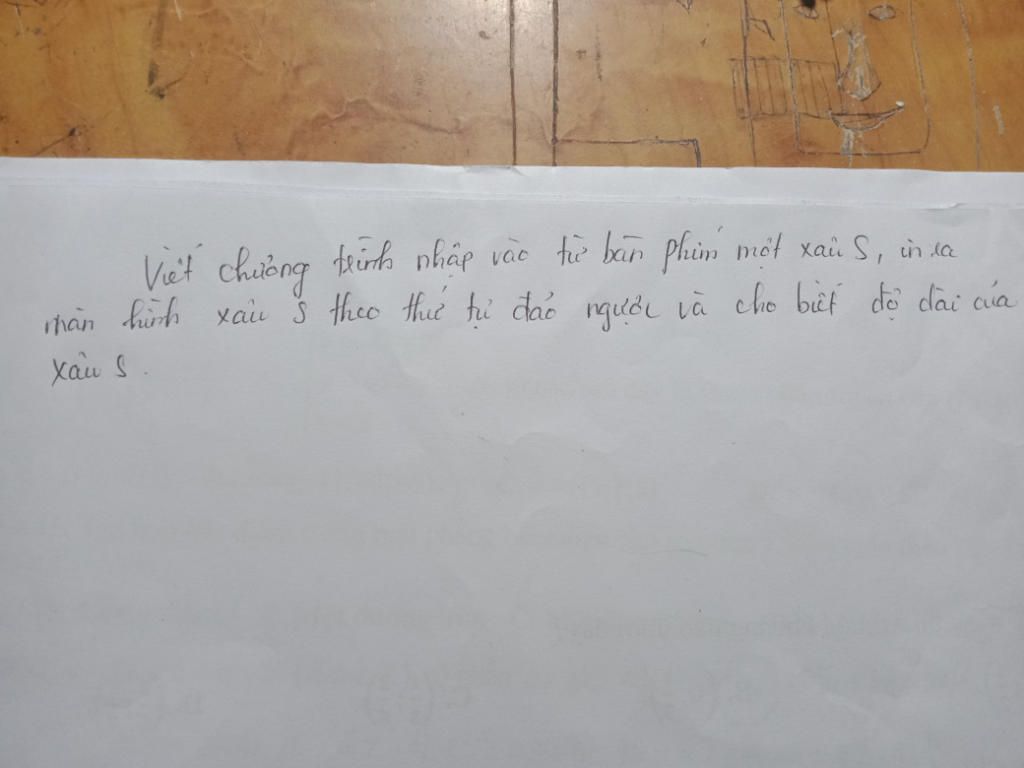 Viết chương trình nhập vào từ bàn phím một xâu S, in ra
màn hình xâu S theo thứ tự đảo ngược và cho biết độ dài của
xâu S.